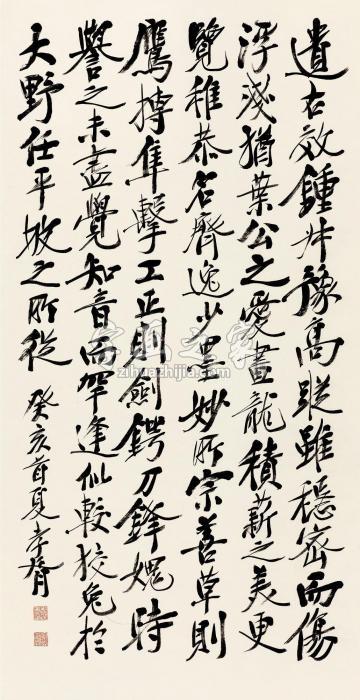 遺古效鍾叔豫高蹤雖穩密而傷
浮淺猶葉公之愛畫龍積薪之美更
覽稚恭名齊逸少墨妙所宗善草則
鷹搏隼擊工正則劍鍔刀鋒媿時
譽之未盡覺知音而罕逢似較狡兔於
大野任平坡之所從
癸亥首夏孝胥
字画之家
zihuazhijia.com